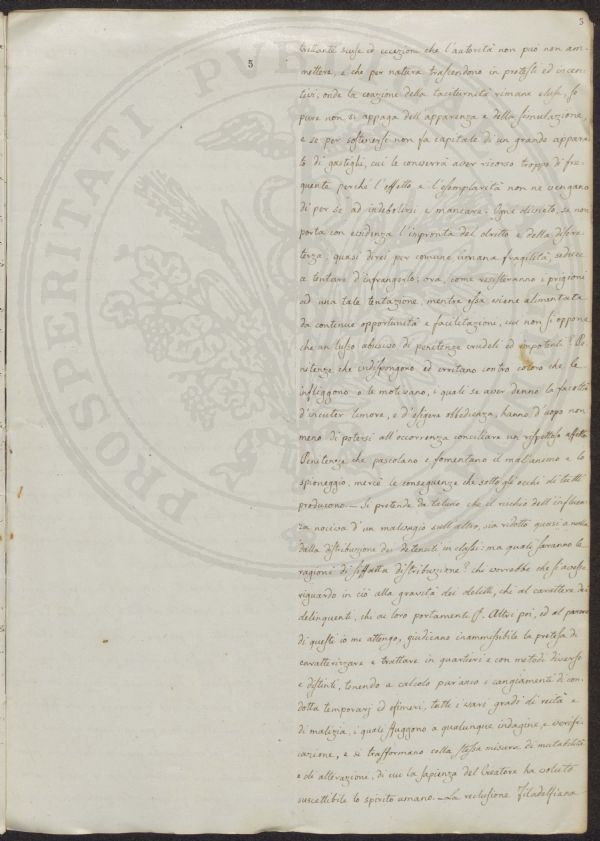 5
5
trettante scuse ed eccezioni che l'autorità non può non am-
mettere, e che per natura trascendono in protesti ed incen-
tivi, onde la coazione della taciturnità rimane elusa, se
pure non si appaga dell'apparenza e della simulazione,
e se per sostenersi non fa capitale di un grande appara-
to di gastighi, cui le converrà aver ricorso troppo di fre-
quente perché l'effetto e l'esemplarità non ne vengano
di per se ad indebolirsi e mancare. Ogni divieto, se non
porta con evidenza l'impronta del dritto e della discre-
tezza, quasi direi per comune umana fragilità, seduce
a tentare d'infrangerlo; ora, come resisteranno i prigioni
ad una tale tentazione, mentre essa viene alimentata
da continue opportunità e facilitazione, cui non si oppone
che un lusso abusivo di penitenze crudeli ed impotenti? Pe-
nitenze che indispongono ed irritano contro coloro che le
infliggono o le motivano, i quali se aver denno la facoltà
d'incuter timore, e d'esigere obbedienza, hanno d'uopo non
meno di potersi all'occorrenza conciliare un rispettoso affetto.
Penitenze che pascolano e fomentano il mal'animo e lo
spioneggio, mercè le conseguenze che sotto gli occhi di tutti
producono. — Si pretende da taluno che il rischio dell'influen-
za nociva d'un malvagio sull'altro, sia ridotto quasi a nulla
dalla distribuzione dei detenuti in classi: ma quali saranno le
ragioni di siffatta distribuzione? chi vorrebbe che si avesse
riguardo in ciò alla gravità dei delitti, chi al carattere dei
delinquenti, chi ai loro portamenti. Altri poi, ed al parere
di questi io mi attengo, giudicano inammissibile la pretesa di
caratterizzare e trattare in quartieri e con metodi diversi
e distinti, tenendo a calcolo pur'anco i cangiamenti di con-
dotta temporarj ed efimeri, tutti i varj gradi di reità e
di malizia, i quali sfuggono a qualunque indagine, e verifi-
cazione, e si trasformano colla stessa misura di mutabilità
e di alterazioni, di cui la sapienza del Creatore ha voluto
suscettibile lo spirito umano. — La reclusione Filadelfiana
PROSPERITATI PUBLICAE